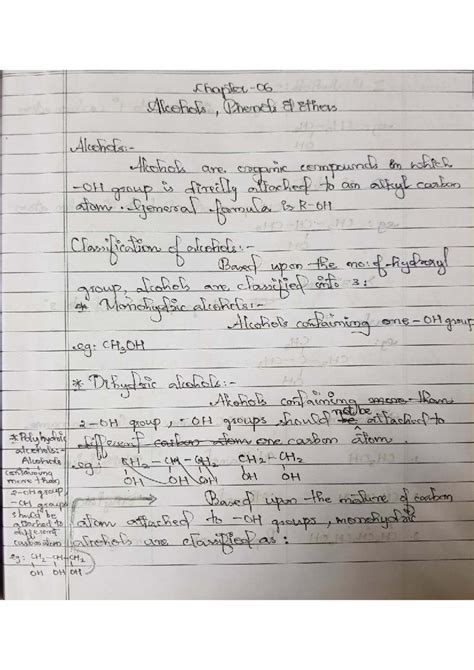 Chapter-06
Alcohols, Phenols & ethers
Alcohols:-
Alcohols are organic compounds in which
-OH group is directly attached to an alkyl carbon
atom. General formula is R-OH
Classification of alcohols:-
Based upon the no: of hydroxyl
group, alcohols are classified into 3:
* Monohydric alcohols:-
Alcohols containing one -OH group
eg: CH3OH
* Dihydric alcohols:-
Alcohols containing more than
2-OH group, -OH groups should not be attached to
different carbon atom one carbon atom.
eg: CH2-CH-CH2 CH2-CH2
OH OH OH OH OH
Based upon the nature of carbon
atom attached to -OH groups, monohydric
alcohols are classified as:
* Polyhydric
alcohols:-
Alcohols
containing
more than
2-OH group,
-OH groups
should be
attached to
different
carbon atom
eg: CH2-CH-CH2
OH OH OH